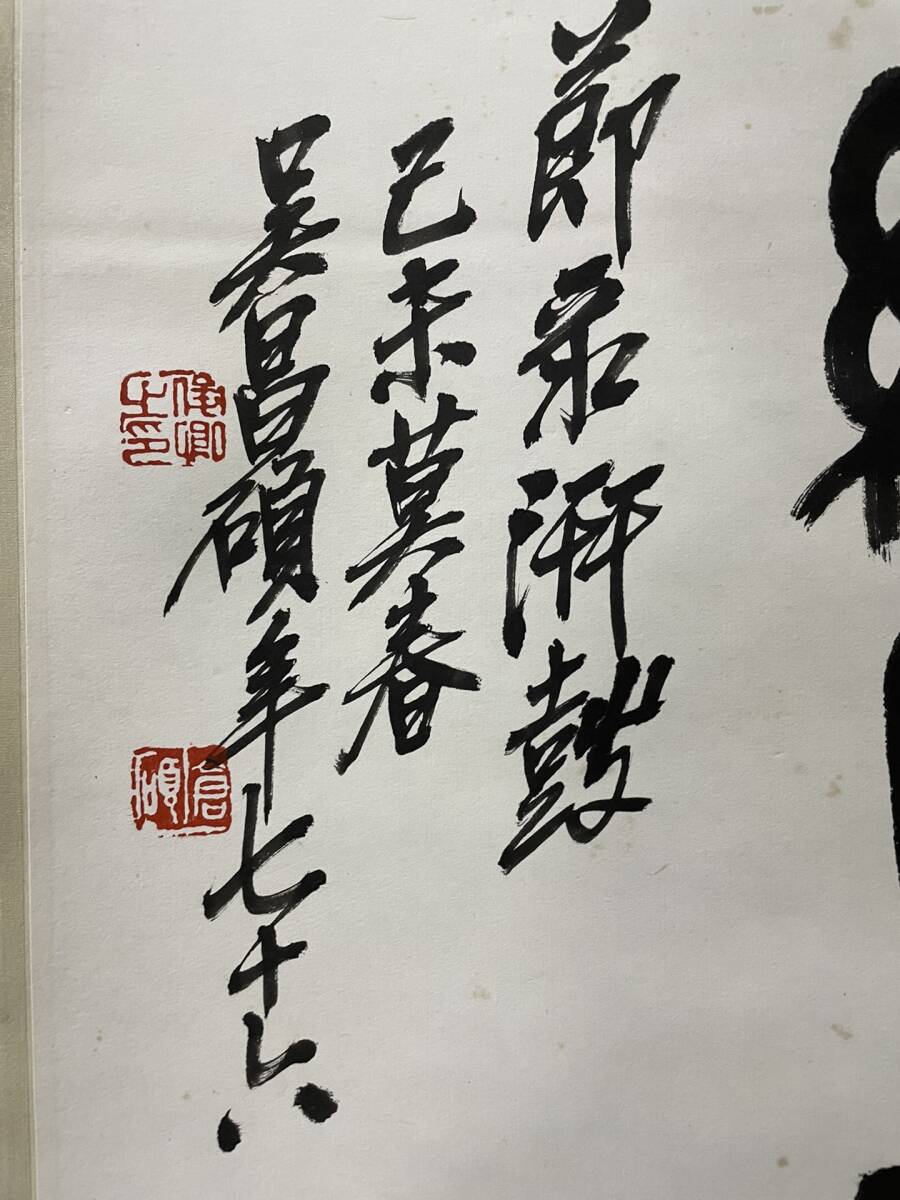 節录汧鼓
己未莫春
吳昌碩年七十六
俊卿之印
倉碩